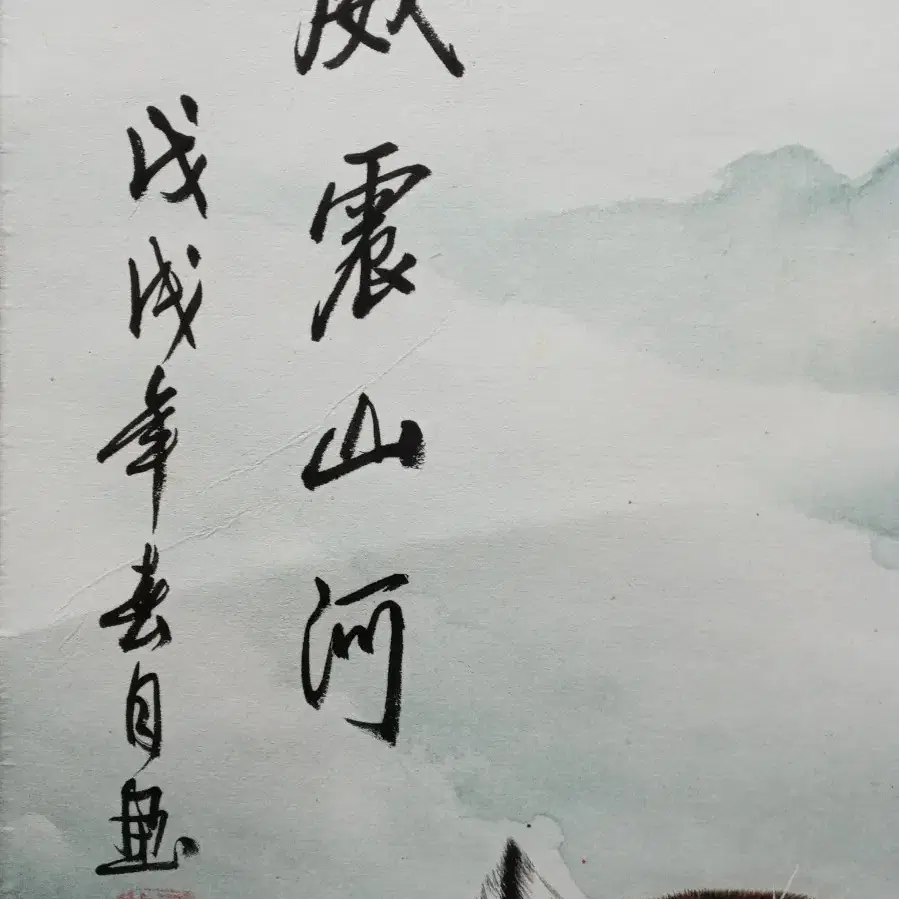 威震山河
戊戌年春月画